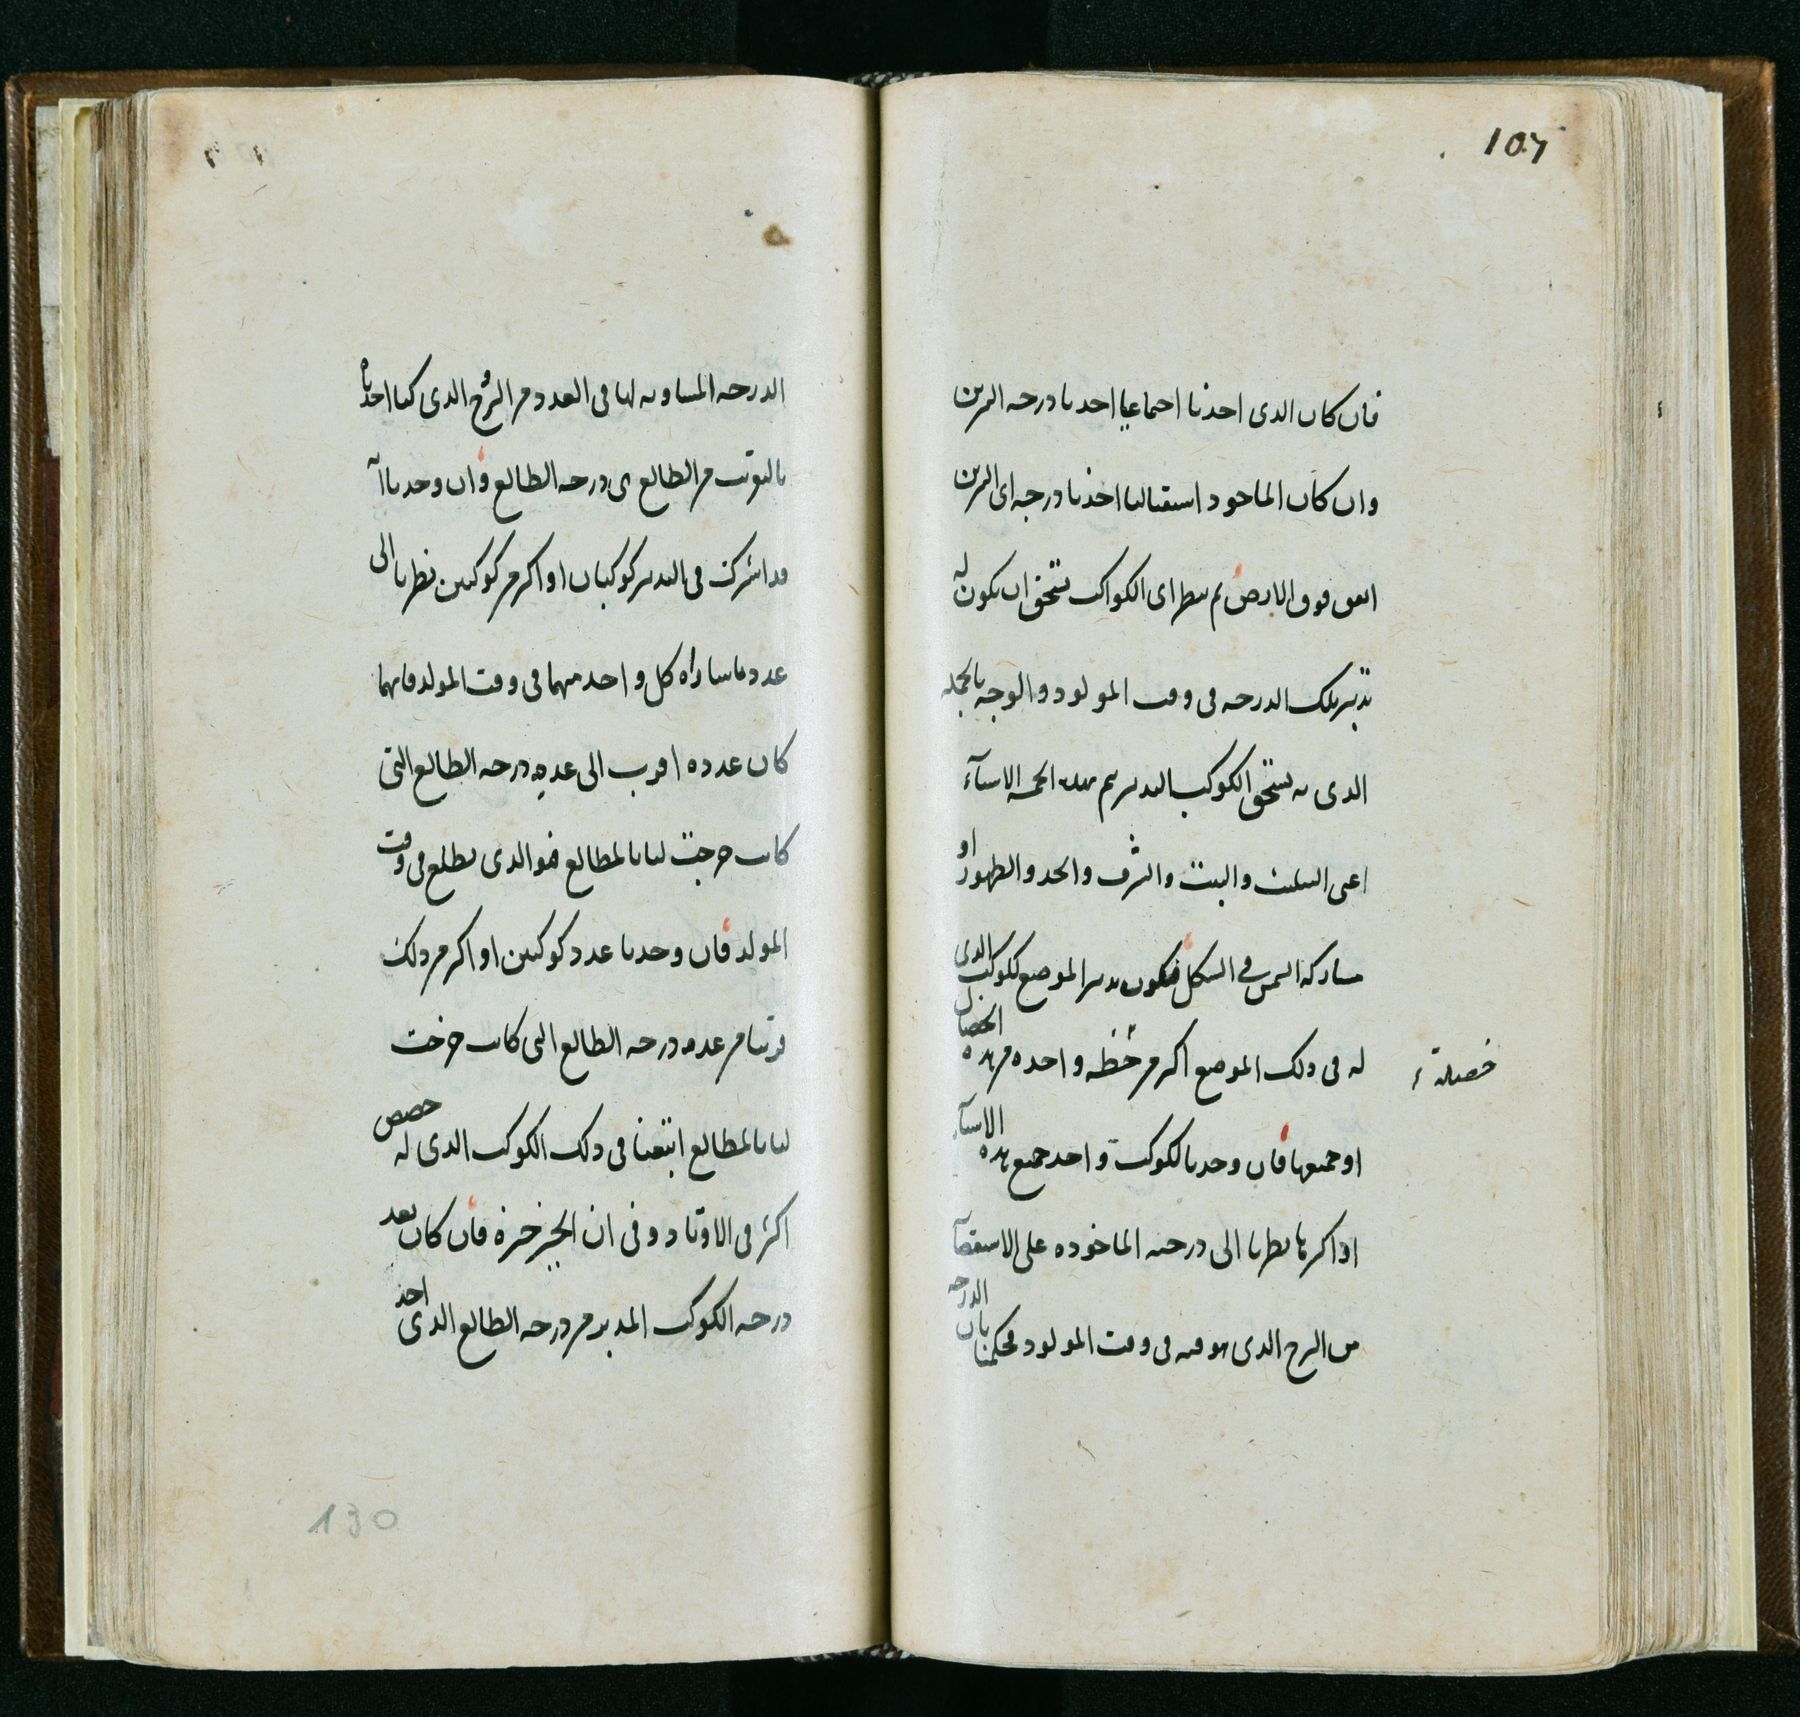 107
فان كان الدى احدنا احماعيا احدنا درحه النيرين
وان كان الماحود استقباليا اخذنا درجه اى النيرين
ايهن فوق الارض ثم ينطر اى الكواكب يستحق ان يكون له
تدبير تلك الدرحه فى وقت المولود والوجه بالجمله
الدى به يستحق الكوكب التدبير ثم بهده الخمسه الاشيآء
اعنى المثلث والبيت والشرف والحد والطهور او
مشاركه الشمس فى الشكل فيكون مدبر الموضع كلكوكب الدى
له فى دلك الموضع اكثر من حُظه واحده من هده الخصال
خصلة
او جميعها فان وحدنا لكوكب واحد جميع هده الاشيآء
او اكثرها نطرنا الى درحته الماخوده على الاستقصآء
من البرج الدى هو فيه فى وقت المولود فحكمنا بان الدرحه
الدرحه المساويه لها فى العدد من البرُج الدى كنا اخدناه
بالتوقيت من الطالع هى درحه الطالع وان وحدنا انه
قد اشترك فى التدبير كوكبان او اكثر من كوكبين نطرنا الى
عدد ما ساراه كل واحد منهما فى وقت المولد فايهما
كان عدده اقرب الى عدد درحه الطالع التى
كانت خرجت لنا بالمطالع فهو الدى يطلع فى وقت
المولد فان وحدنا عدد كوكبين او اكثر من دلك
قريبا من عدد درحه الطالع التى كانت خرجت
لنا بالمطالع اتبعنا فى دلك الكوكب الدى له حصص
اكثر فى الاوتاد وفى ان الحيز حيزه فان كان بعد
درحه الكوكب المدبر من درحه الطالع الدى اخذ
130